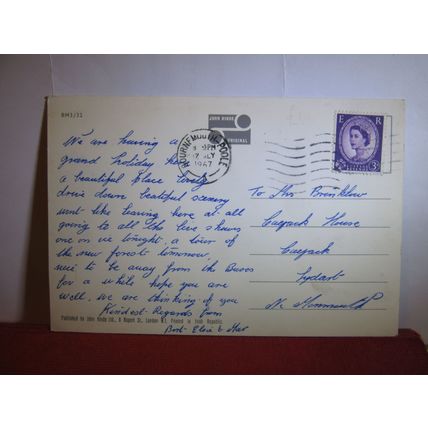 BM3/31
JOHN HINDE
ORIGINAL
BOURNEMOUTH-POOLE
PM
JLY
1967
E R
3D
We are having a
grand holiday here
a beautiful place lovely
drive down beatiful scenery
wont like leaving here at all
going to all the live shows
one on we tonight, a tour of
the new forest tomorrow
nice to be away from the Buses
for a while hope you are
well. we are thinking of you
Kindest Regards from
Bert Elsie &
To Mr Brinklow
House
Lydart
Nr Monmouth
Published by John Hinde Ltd., 6 Rupert St., London W.1. Printed in Irish Republic.